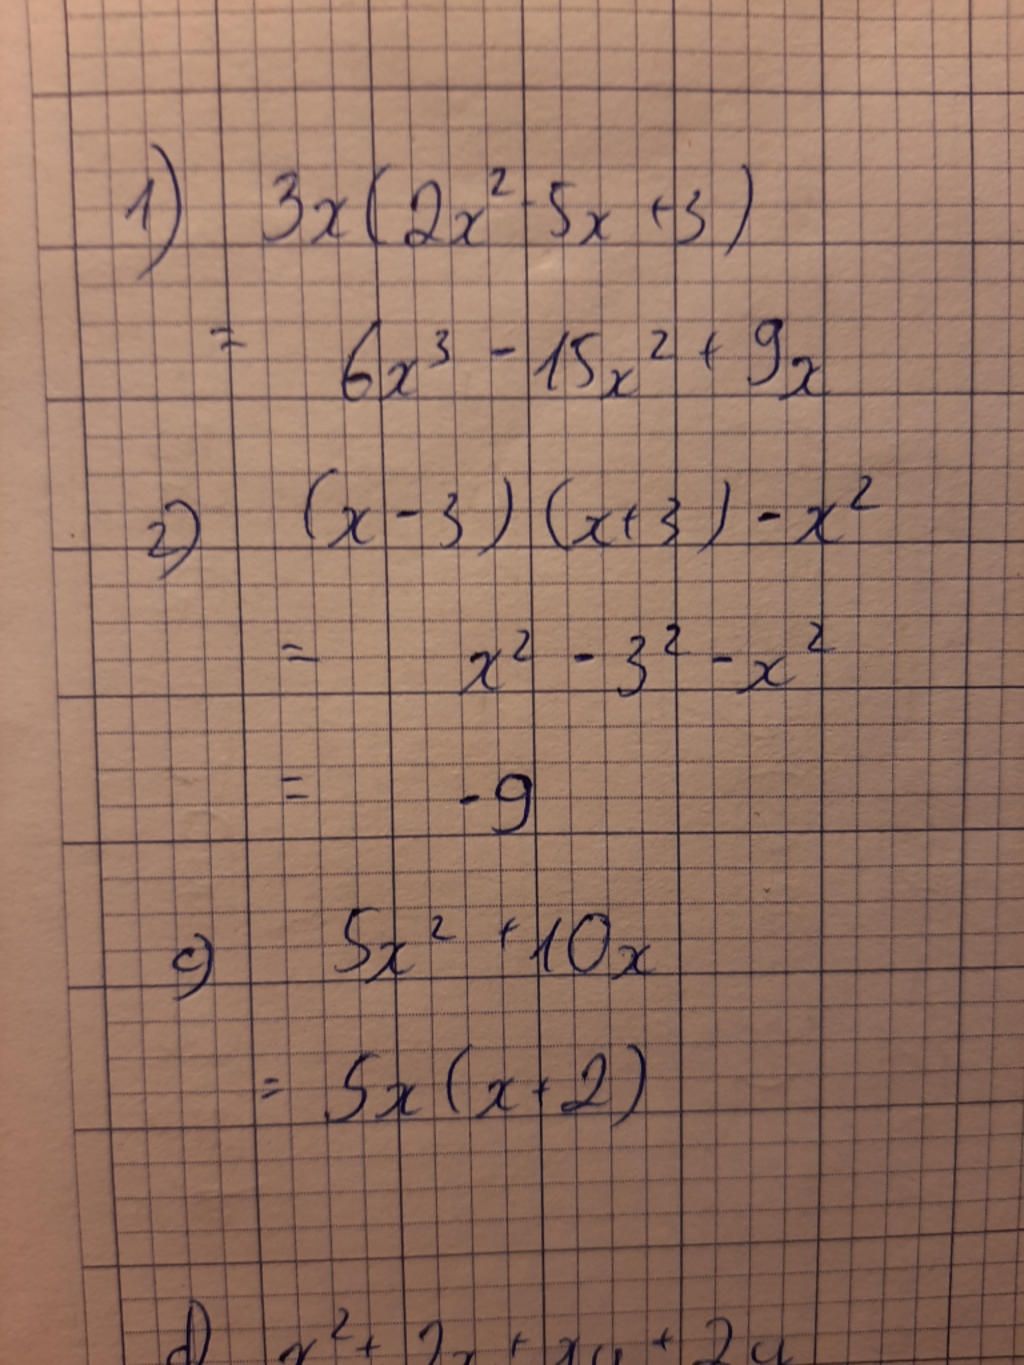 1) 3x(2x²-5x+3)
= 6x³ - 15x² + 9x
2) (x-3)(x+3) - x²
= x² - 3² - x²
= -9
c) 5x² + 10x
= 5x(x+2)
d) x² + 2x + xy + 2y